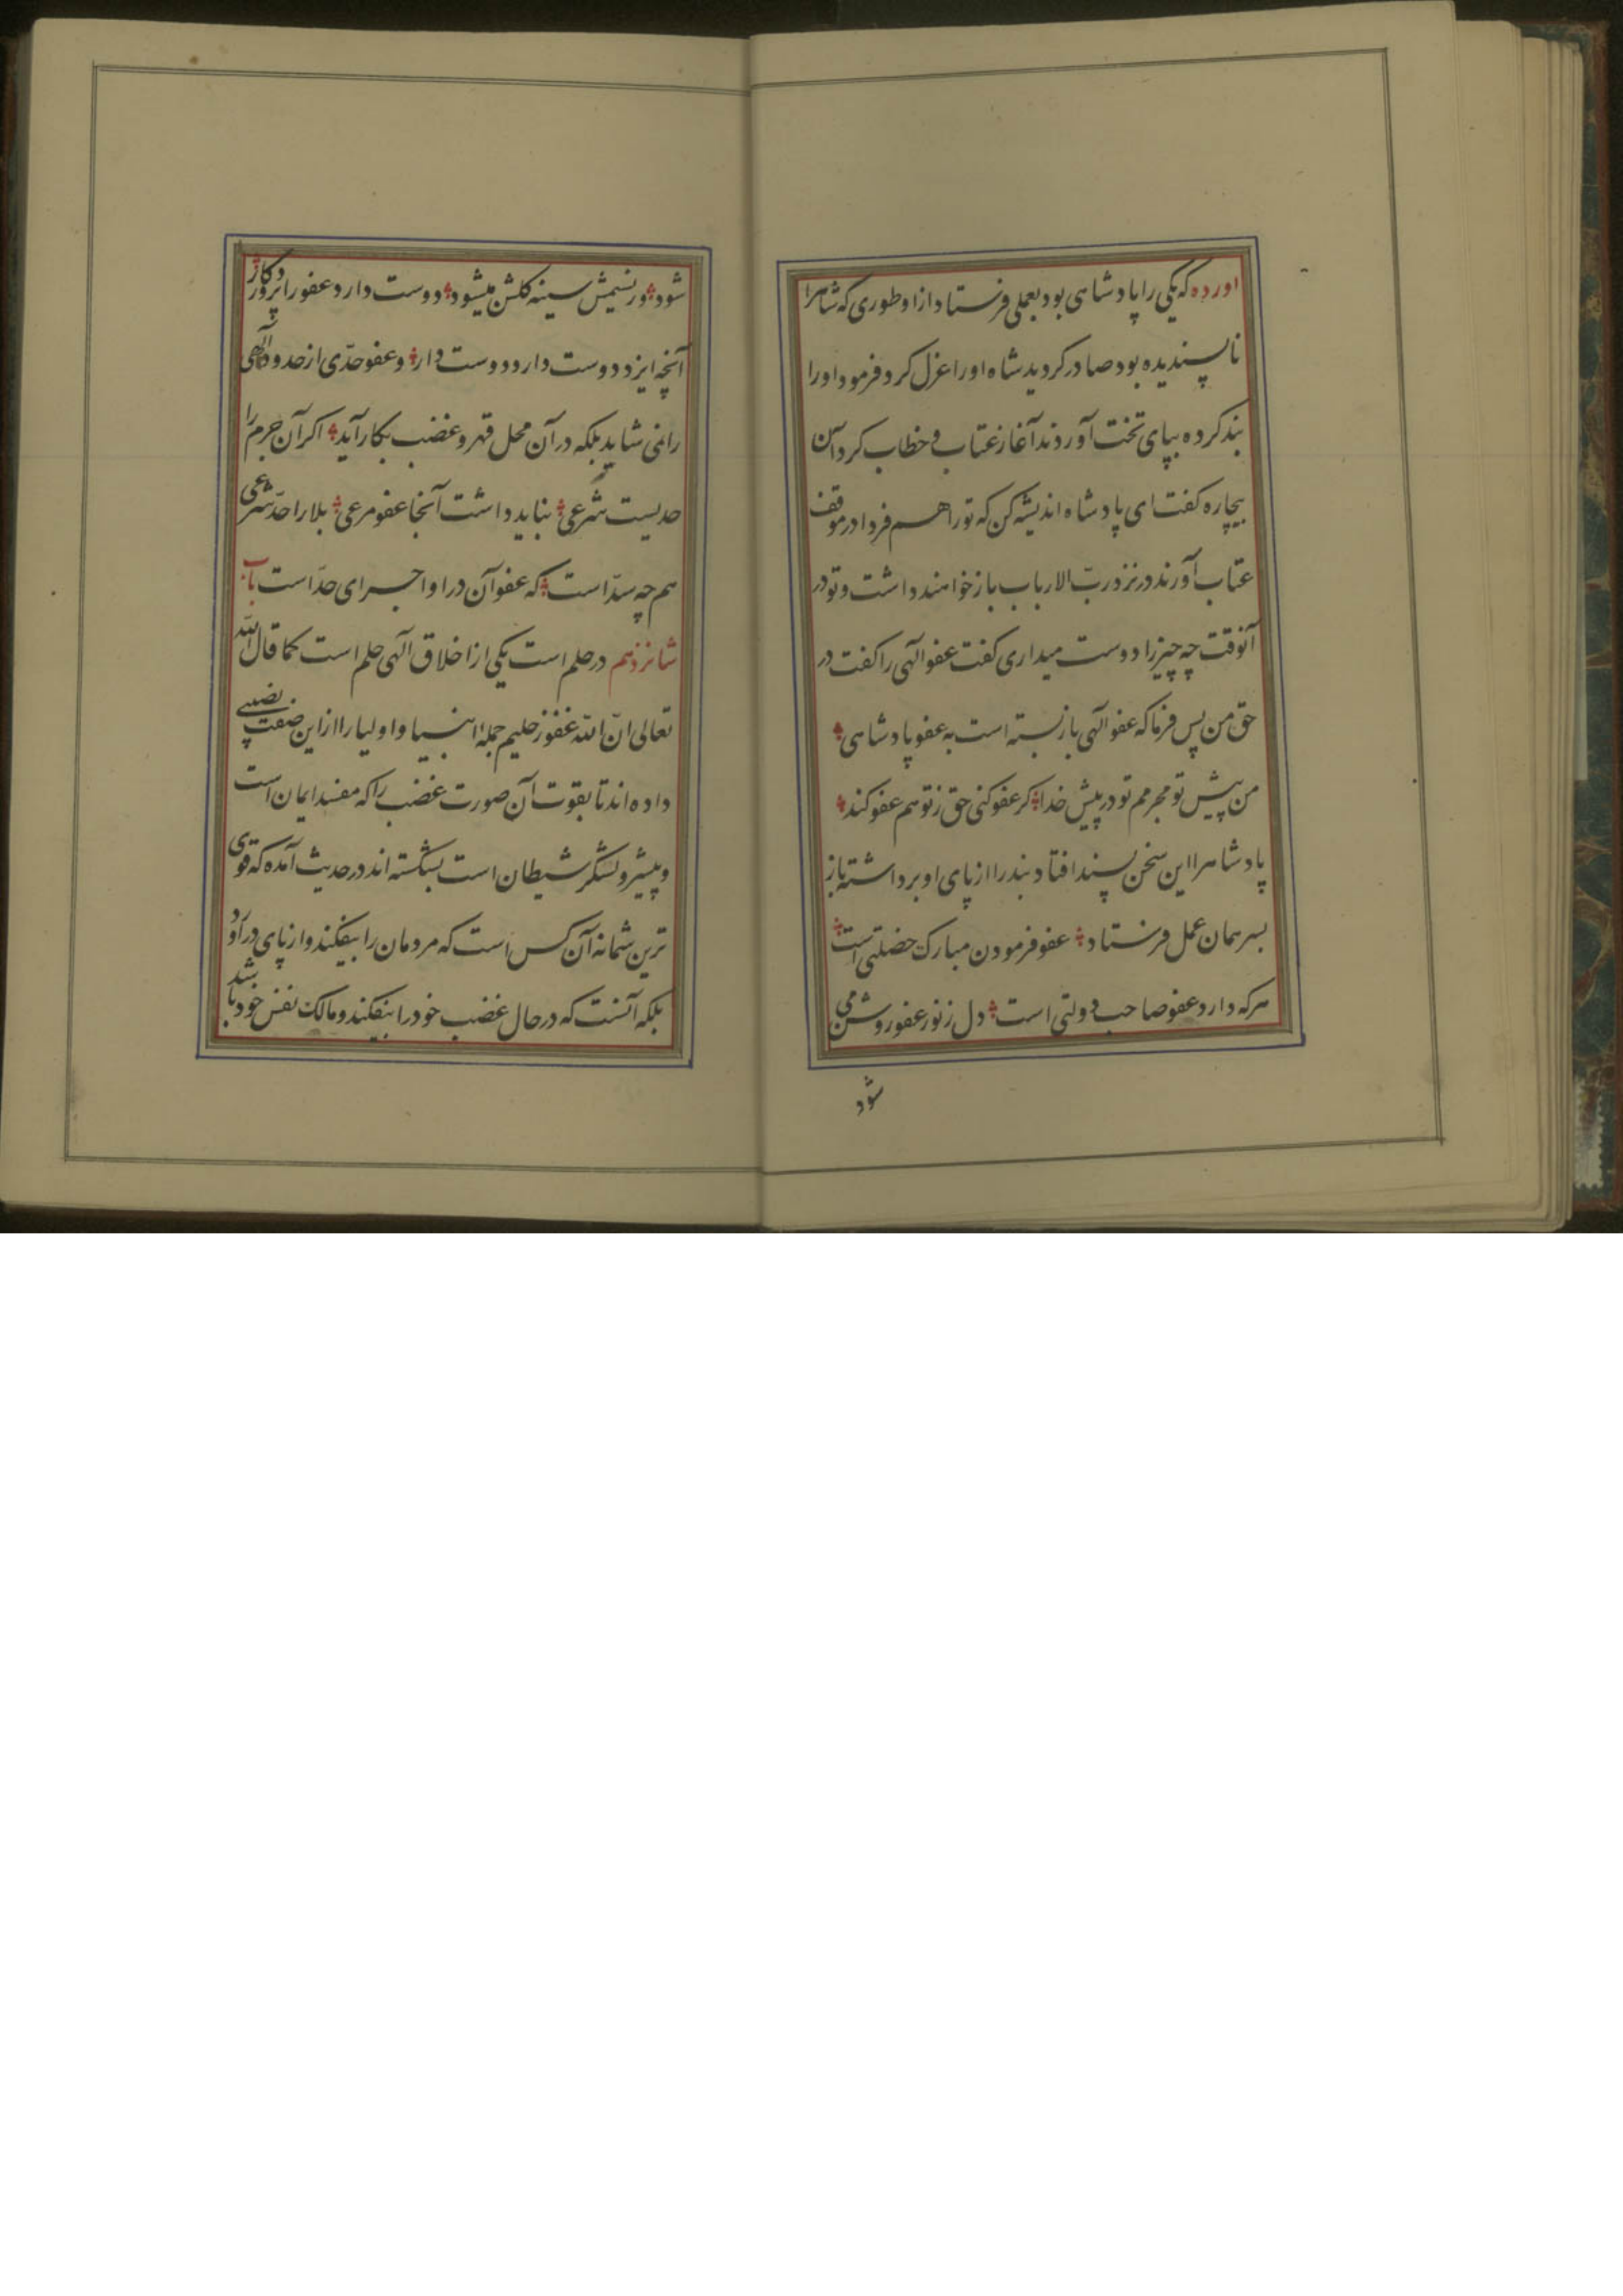 اورده که یکی را پادشاهی بود بعملی فرستاد از او طوری که شاهرا
ناپسندیده بود صادر کردید شاه اورا عزل کرد و فرمود اورا
بند کرده بپای تخت آوردند آغاز عتاب و خطاب کرد آن
بیچاره کفت ای پادشاه اندیشه کن که تورا هم فردا در موقف
عتاب آورند در نزد ربّ الارباب باز خواهند داشت و تو در
آنوقت چه چیز را دوست میداری کفت عفو الهی را کفت در
حق من پس فرما که عفو الهی باز بسته است به عفو پادشاهی
من پیش تو مجرمم تو در پیش خدا کر عفو کنی حق ز تو هم عفو کند
پادشاهرا این سخن پسند افتاد بند را از پای او برداشته باز
بسر همان عمل فرستاد عفو فرمودن مبارک خصلتی است
هرکه دارد عفو صاحب دولتی است دل ز نور عفو روشن می
شود
شود ور نسیمش سینه کلشن میشود دوست دارد عفو را پروردکار
آنچه ایزد دوست دارد دوست دار و عفو حدّی از حدود الهی
را نمی شاید بلکه در آن محل قهر و غضب بکار آید اکر آن جرم را
حدیست شرعی نباید داشت آنجا عفو مرعی بلا را حدّ شرعی
هم چه سدّ است که عفو آن در او اجرای حدّ است باب
شانزدهم در حلم است یکی از اخلاق الهی حلم است کما قال الله
تعالی انّ الله غفور حلیم جملهٔ انبیا و اولیا را از این صفت نصیبی
داده اند تا بقوت آن صورت غضب را که مفسد ایمان است
و پیشرو لشکر شیطان است بشکسته اند در حدیث آمده که قوی
ترین شما نه آن کس است که مردمان را بیفکند و از پای در آورد
بلکه آنست که در حال غضب خود را بیفکند و مالک نفس خود باشد